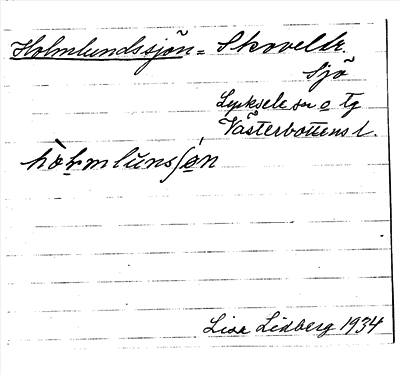 Holmlundssjön = Skoveltr.
Sjö
Lycksele sn o tg
Västerbottens l.
hòḷmlunsʃö́n
Lisa Lidberg 1934